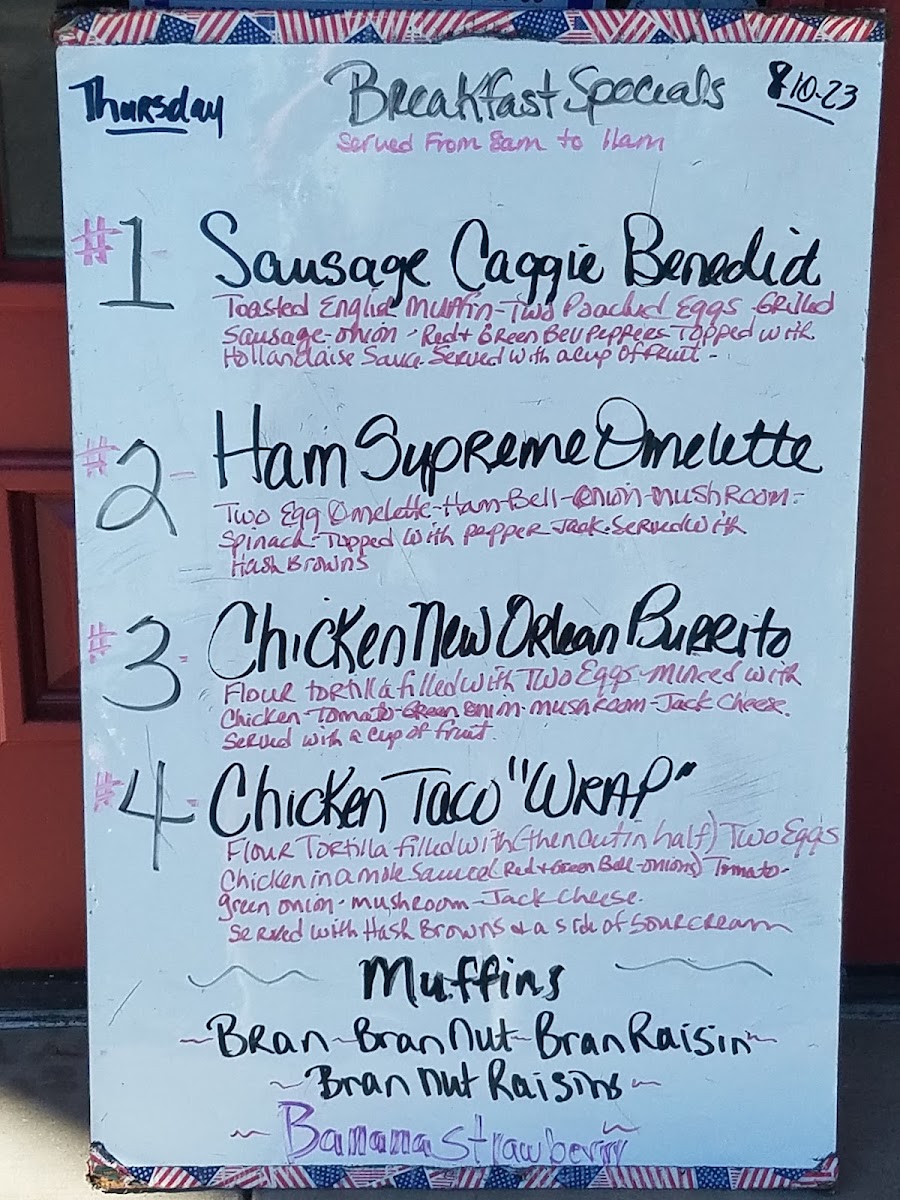 Thursday Breakfast Specials 8-10-23
Served From 8am to 11am
#1- Sausage Caggie Benedict
Toasted English Muffin-Two Poached Eggs-Grilled
Sausage-onion-Red+Green Bell Peppers-Topped with
Hollandaise Sauce-Served with a cup of fruit-
#2- Ham Supreme Omelette
Two Egg Omelette-Ham-Bell-Onion-mushRoom-
Spinach-Topped with pepper Jack-Served with
Hash Browns
#3- Chicken New Orlean Burrito
Flour tortilla filled with Two Eggs-Mixed with
Chicken-Tomato-Green Onion-mushRoom-Jack Cheese.
Served with a cup of fruit.
#4- Chicken Taco "WRAP"
Flour Tortilla filled with (then cut in half) Two Eggs
Chicken in a mole sauce (Red+Green Bell-onions) Tomato-
green onion-mushroom-Jack Cheese.
Served with Hash Browns & a side of sourcream
~ Muffins ~
~Bran~Bran Nut~Bran Raisin~
~Bran nut Raisins~
~ Banana Strawberry ~